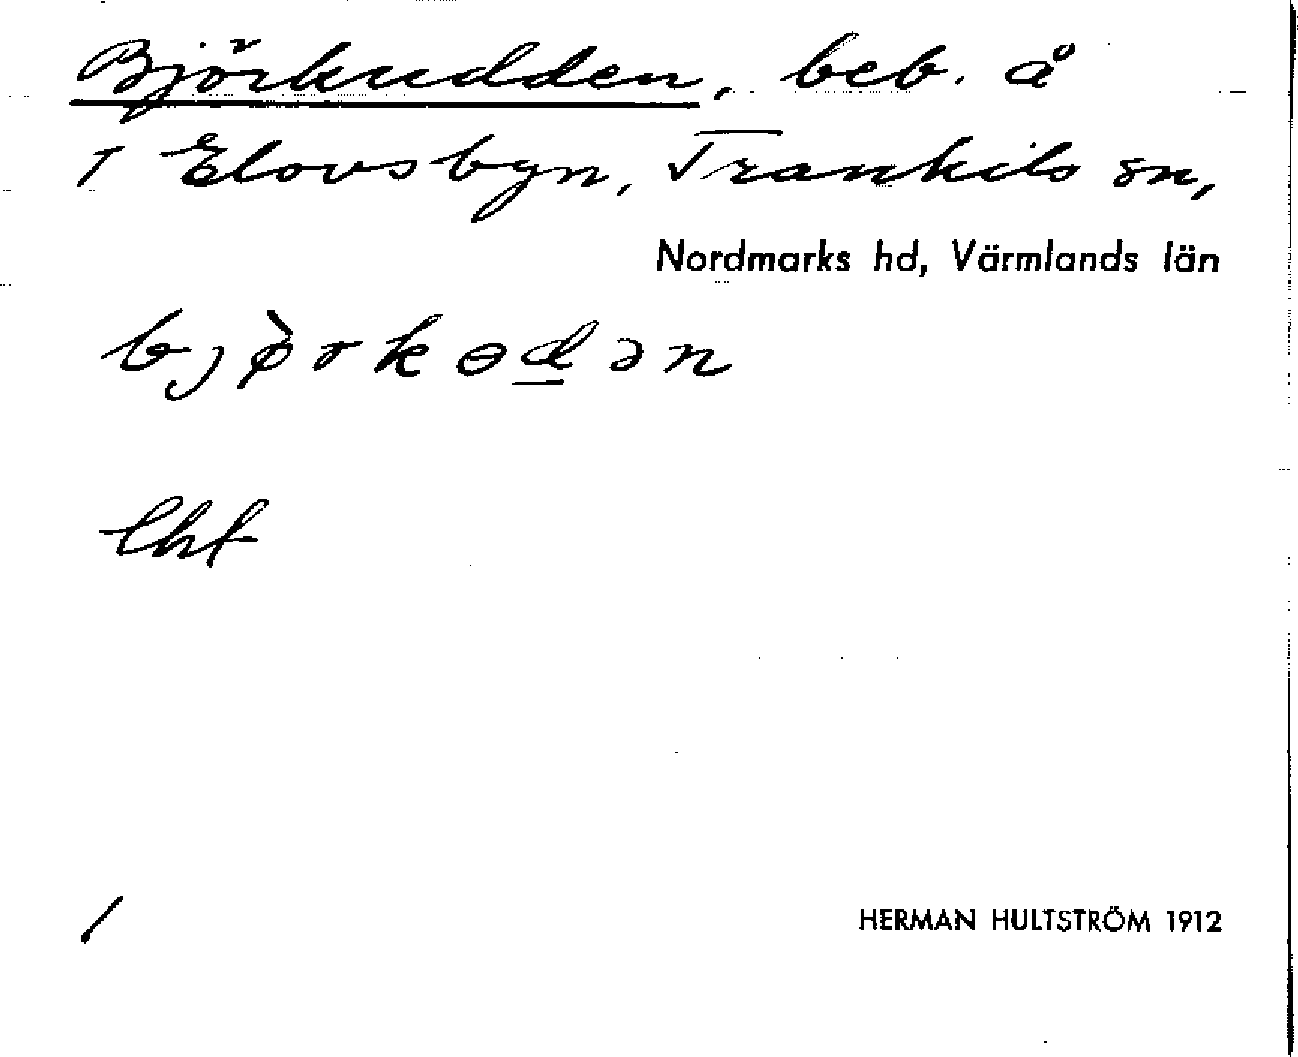 Björkudden, beb. å
1 Elovsbyn, Trankils sn,
Nordmarks hd, Värmlands län
bjø̀rkɵd̲ən
lhf
/
HERMAN HULTSTRÖM 1912